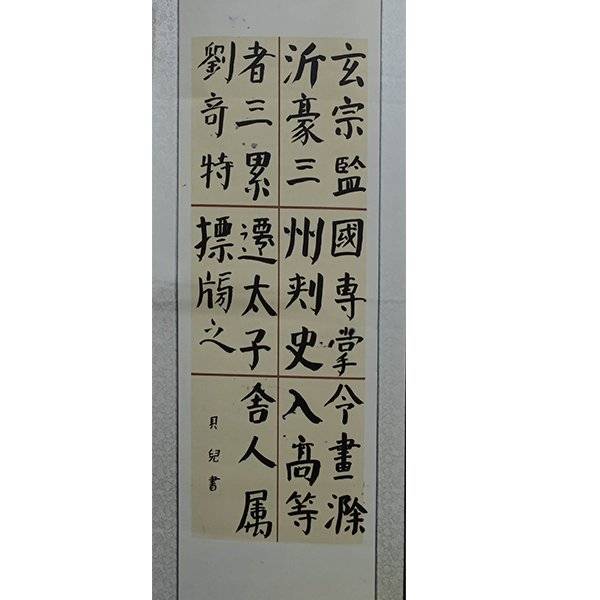 玄宗監國專掌令畫滁
沂豪三州刾史入高等
者三累遷太子舎人属
劉奇特摽牓之
貝兒書